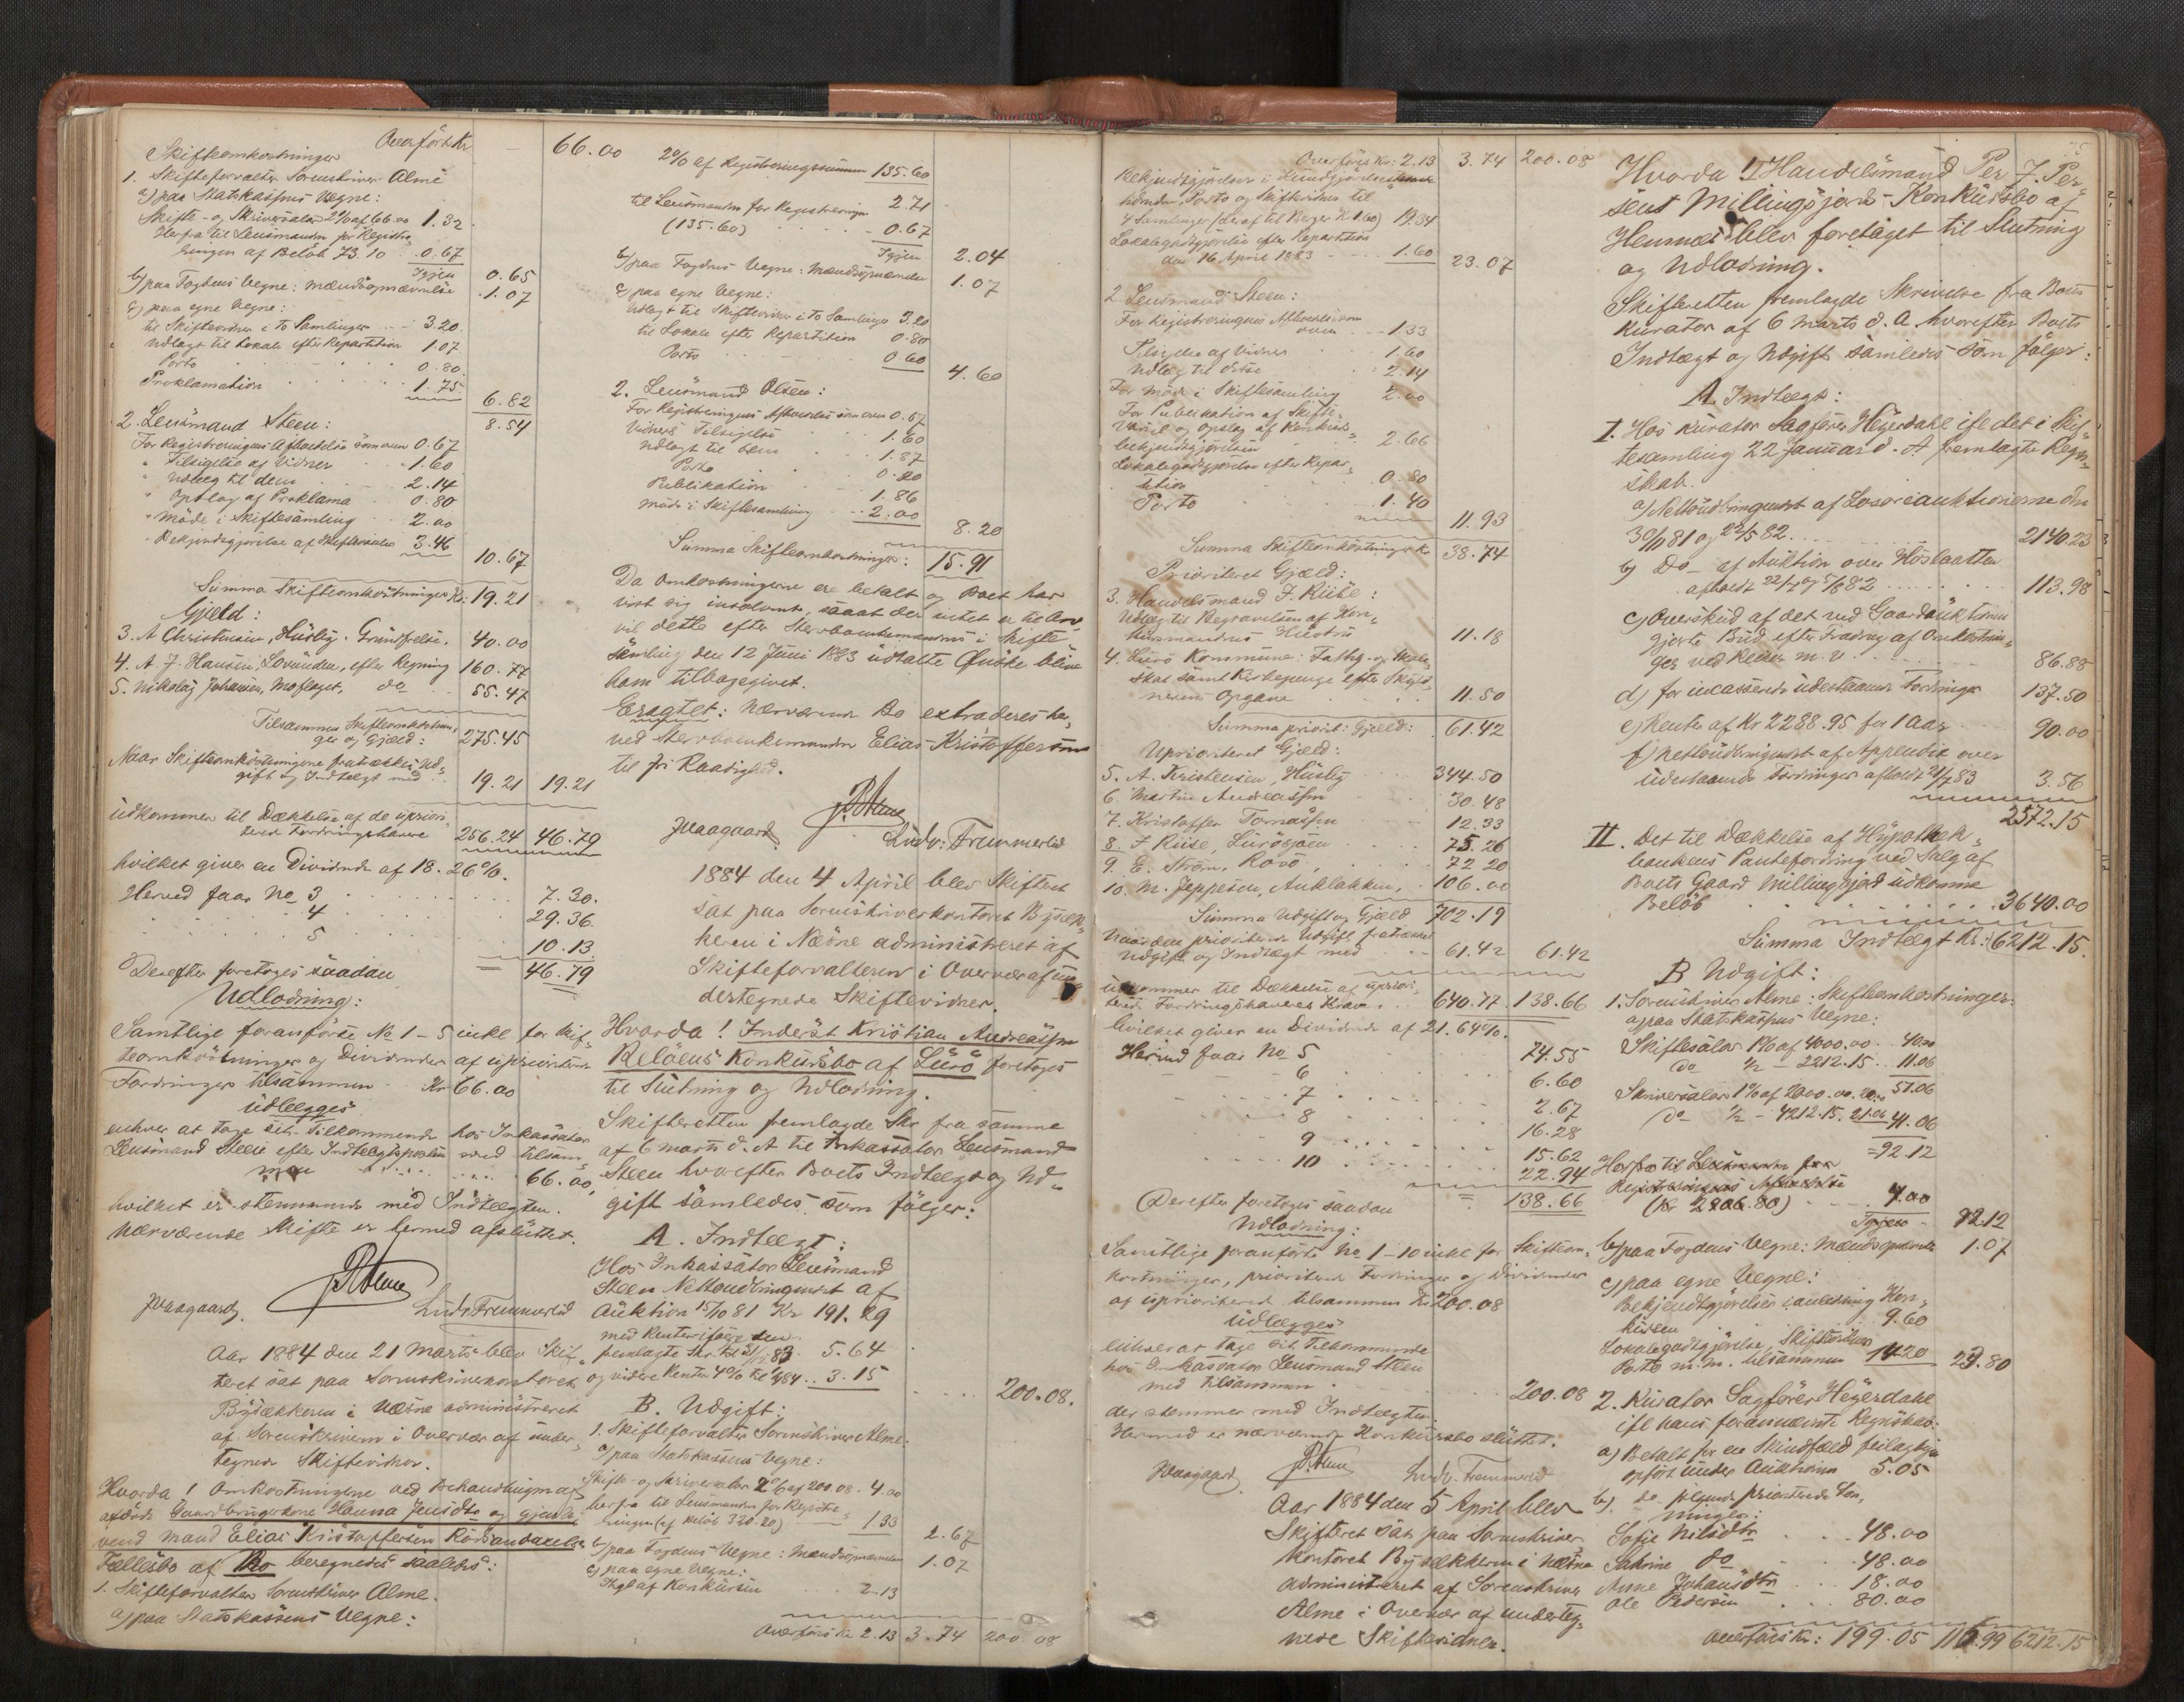 Overført Kr. 66.00
Skifteomkostninger
1. Skifteforvalter Sorenskriver Alme
a) paa Statskassens Vegne:
Skifte- og Skriversalær 2% af 66.00 1.32
Herfra til Lensmanden for Registre-
ringen af Beløb 73.10 0.67
Igjen 0.65
b) paa Fogdens Vegne: Mændsopnævnelse 1.07
c) paa egne Vegne:
til Skiftevidner i To Samlinger 3.20
Udlagt til Lokale efter Repartition 1.07
Porto 0.80
Proklamation 1.75
6.82
8.54
2. Lensmand Steen:
For Registreringens Afholdelse som oven 0.67
" Tilsigelse af Vidner 1.60
" Udlæg til dem 2.14
" Opslag af Proklama 0.80
" Møde i Skiftesamling 2.00
" Bekjendtgjørelse af 3.46
10.67
Summa Skifteomkostninger Kr: 19.21
Gjeld:
3. A Christensen, Husby. 40.00
4. A. J. Hansen, Lovunden, efter Regning 160.77
5. Nikolaj Johansen, Moflaget, do 55.47
Tilsammen Skifteomkostnin-
ger og Gjæld: 275.45
Naar Skifteomkostningerne fratrækkes Ud-
gift og Indtægt med 19.21 19.21
udkommer til Dækkelse af de upriori-
terede Fordringshavere 256.24 46.79
hvilket giver en Dividende af 18.26%.
Herved faar No 3 7.30.
4 29.36.
5 10.13
= 46.79
Derefter foretoges saadan
Udlodning:
Samtlige foranførte No 1-5 inkl for Skif-
teomkostninger og Dividender af uprioriterede
Fordringer tilsammen Kr 66.00
udlægges
enhver at tage sit Tilkommende hos Inkassator
Lensmand Steen efter Indtægtsposten med tilsam-
men 66.00
hvilket er stemmende med Indtægten.
Nærværende Skifte er hermed afsluttet.
JWaagaard. Alme Ludv. Fremmerlid
Aar 1884 den 21 Marts blev Skif-
teret sat paa Sorenskriverkontoret
Bysækkeren i Næsne administreret
af Sorenskriveren i Overvær af under-
tegnede Skiftevidner.
Hvorda! Omkostningerne ved Behandlingen af
afdøde Gaardbrugerkone Hanna Jensdtr og gjenle-
vend Mand Elias Kristoffersen
Fællesbo af beregnedes saaledes:
1. Skifteforvalter Sorenskriver Alme.
a) paa Statskassens Vegne:
2% af Registreringssummen 135.60
2.71
til Lensmanden for Registreringen
(135.60) 0.67
Igjen 2.04
b) paa Fogdens Vegne: Mændsopnævnelsen 1.07
c) paa egne Vegne:
Udlagt til Skiftevidner i To Samlinger 3.20
til Lokale efter Repartition 0.80
Porto 0.60
4.60
2. Lensmand Olsen:
For Registreringens Afholdelse som oven 0.67
Vidners Tilsigelse 1.60
Udlagt til dem 1.87
Porto 0.20
Publikation 1.86
Møde i Skiftesamling 2.00
8.20
Summa Skifteomkostninger: 15.91
Da Omkostningerne ere betalt og Boet har
vist sig insolvent, saaat der intet er til Arv
vil dette efter Sterbboenkemandens i Skifte-
samling den 12 Juni 1883 udtalte Ønske blive
ham tilbagegivet.
Eragtet: Nærværende Bo extraderes her-
ved Sterbboenkemanden Elias Kristoffersen
til fri Raadighed.
JWaagaard Alme Ludv: Fremmerlid
1884 den 4 April blev Skifteret
sat paa Sorenskriverkontoret Bysæk-
keren i Næsne administreret af
Skifteforvalteren i Overvær af un-
dertegnede Skiftevidner.
Hvorda! Inderst Kristian Andreassen
Reløens Konkursbo af Lurø foretoges
til Slutning og Udlodning.
Skifteretten fremlagde Skr fra samme
af 6 Marts d. A til Inkassator Lensmand
Steen hvorefter Boets Indtægt og Ud-
gift samledes som følger:
A. Indtægt:
Hos Inkassator Lensmand
Steen Nettoudbringendet af
Auktion 15/10 81 Kr 191.29
med Renter ifølge den
fremlagte Skr. til 31/12 83. 5.64
og videre Renter 4% til 84 3.15
200.08.
B. Udgift:
1. Skifteforvalter Sorenskriver Alme:
a) paa Statskassens Vegne:
Skifte- og Skriversalær 2% af 200.08. 4.00
herfra til Lensmanden for Registre-
ringen (af Beløb 320.20) 1.33
2.67
b) paa Fogdens Vegne: Mændsopnævnelsen 1.07
c) paa egne Vegne:
Thgl af Konkursen 2.13
Overføres Kr 2.13 3.74 200.08
Overføres Kr: 2.13 3.74 200.08
Bekjendtgjørelser i Kundgjørelses
Porto og Skiftevidner til
4 Samlinger (deraf til Berger Kr 1.60) 19.34
Lokalegodtgjørelse efter Repartition
den 16 April 1883 1.60
23.07
2. Lensmand Steen:
For Registreringens Afholdelse som
oven 1.33
Tilsigelse af Vidner 1.60
Udlæg til disse 2.14
For Møde i Skiftesamling 2.00
For Publikation af Skifte-
varsel og Opslag af Konkurs-
bekjendtgjørelsen 2.66
Lokalegodtgjørelse efter Repar-
tition 0.80
Porto 1.40
11.93
Summa Skifteomkostninger Kr 38.74
Prioriteret Gjæld:
3. Handelsmand J. Riise:
Udlæg til Begravelsen af Kon-
kursmandens Hustru 11.18
4. Lurø Kommune: Fattig- og Skole-
skat samt Kirkepenge efter
Opgave 11.50
Summa priorit: Gjæld: 61.42
Uprioriteret Gjæld:
5. A. Kristensen, Husby 344.50
6. Martin Andreassen 30.48
7. Kristoffer Tomassen 12.33
8. J Riise, Lurøsjøen 75.26
9. E. Strøm, Rovø, 72.20
10. M. Jeppesen, Auklakken, 106.00
Summa Udgift og Gjæld 702.19
Naar den prioriterede Udgift fratrækkes
Udgift og Indtægt med 61.42 61.42
udkommer til Dækkelse af upriori-
terede Fordringshaveres Krav 640.77 138.66
hvilket giver en Dividende af 21.64%.
Herved faar No 5 74.55
6 6.60
7 2.67
8 16.28
9 15.62
10 22.94
= 138.66
Derefter foretoges saadan
Udlodning:
Samtlige foranførte No 1-10 inkl for Skifteom-
kostninger, prioriterede Fordringer og Dividender
af uprioriterede tilsammen Kr 200.08
udlægges
enhver at tage sit Tilkommende
hos Inkassator Lensmand Steen
med tilsammen 200.08
der stemmer med Indtægten.
Hermed er nærværende Konkursbo sluttet.
JWaagaard. Alme Ludv. Fremmerlid
Aar 1884 den 5 April blev
Skifteret sat paa Sorenskriver-
kontoret Bysækkeren i Næsne
administreret af Sorenskriver
Alme i Overvær af underteg-
nede Skiftevidner.
75
Hvorda! Handelsmand Per J. Per-
sens Millingsjord - Konkursbo af
Hemnæs blev foretaget til Slutning
og Udlodning.
Skifteretten fremlagde Skrivelse fra Boets
Kurator af 6 Marts d. A. hvorefter Boets
Indtægt og Udgift samledes som følger:
A. Indtægt:
I. Hos Kurator Sagfører Heyerdahl ifl det i Skif-
tesamling 22 Januar d. A fremlagte Regn-
skab.
a) Nettoudbringendet af Løsøreauktionerne den
30/ 81 og 22/5 82. 2140.23
b) Do af Auktion over Høslaatten
afholdt 22/7 og 5/8 82 113.98
c) Overskud af det ved Gaardauktionen
gjorte Bud, efter Fradrag af Omkostnin-
ger ved m. v. 86.88
d) for incasserede udestaaende Fordringer 137.50
e) Renter af Kr 2288.95 for 1 Aar 90.00
f) Nettoudbringendet af Appendix over
udestaaende Fordringer afholdt 21/7 83 3.56
2572.15
II. Det til Dækkelse af Hypothek-
bankens Pantefordring ved Salg af
Boets Gaard Millingsjord udkomne
Beløb 3640.00
Summa Indtægt Kr: 6212.15.
B Udgift:
1. Sorenskriver Alme: Skifteomkostninger:
a) paa Statskassens Vegne:
Skiftesalær 1% af 4000.00 40.00
do ½ - 2212.15 11.06
51.06
Skriversalær 1% af 2000.00 20.00
do ½ - 4212.15. 21.06 41.06
= 92.12
Herfra til Lensmanden for
Registreringens Afholdelse
(Kr 2206.80) 4.00
Igjen
b) paa Fogdens Vegne: Mændsopnævnelse 1.07
c) paa egne Vegne:
Bekjendtgjørelser i anledning Kon-
kursen 9.60
Lokalegodtgjørelse, Skiftevidner
Porto m. m. tilsammen 14.20
23.80
2. Kurator Sagfører Heyerdahl
ifl hans forannævnte Regnskab:
a) Betalt for en Skindfæld feilagtig
opført under Auktionen 5.05
b) do følgende prioriterede Løn-
ninger:
Sofie Nilsdtr 48.00
Sabrine do 48.00
Anne Johansdtr 18.00
Ole Pedersen 80.00
Overføres Kr: 199.05 116.99 6212.15